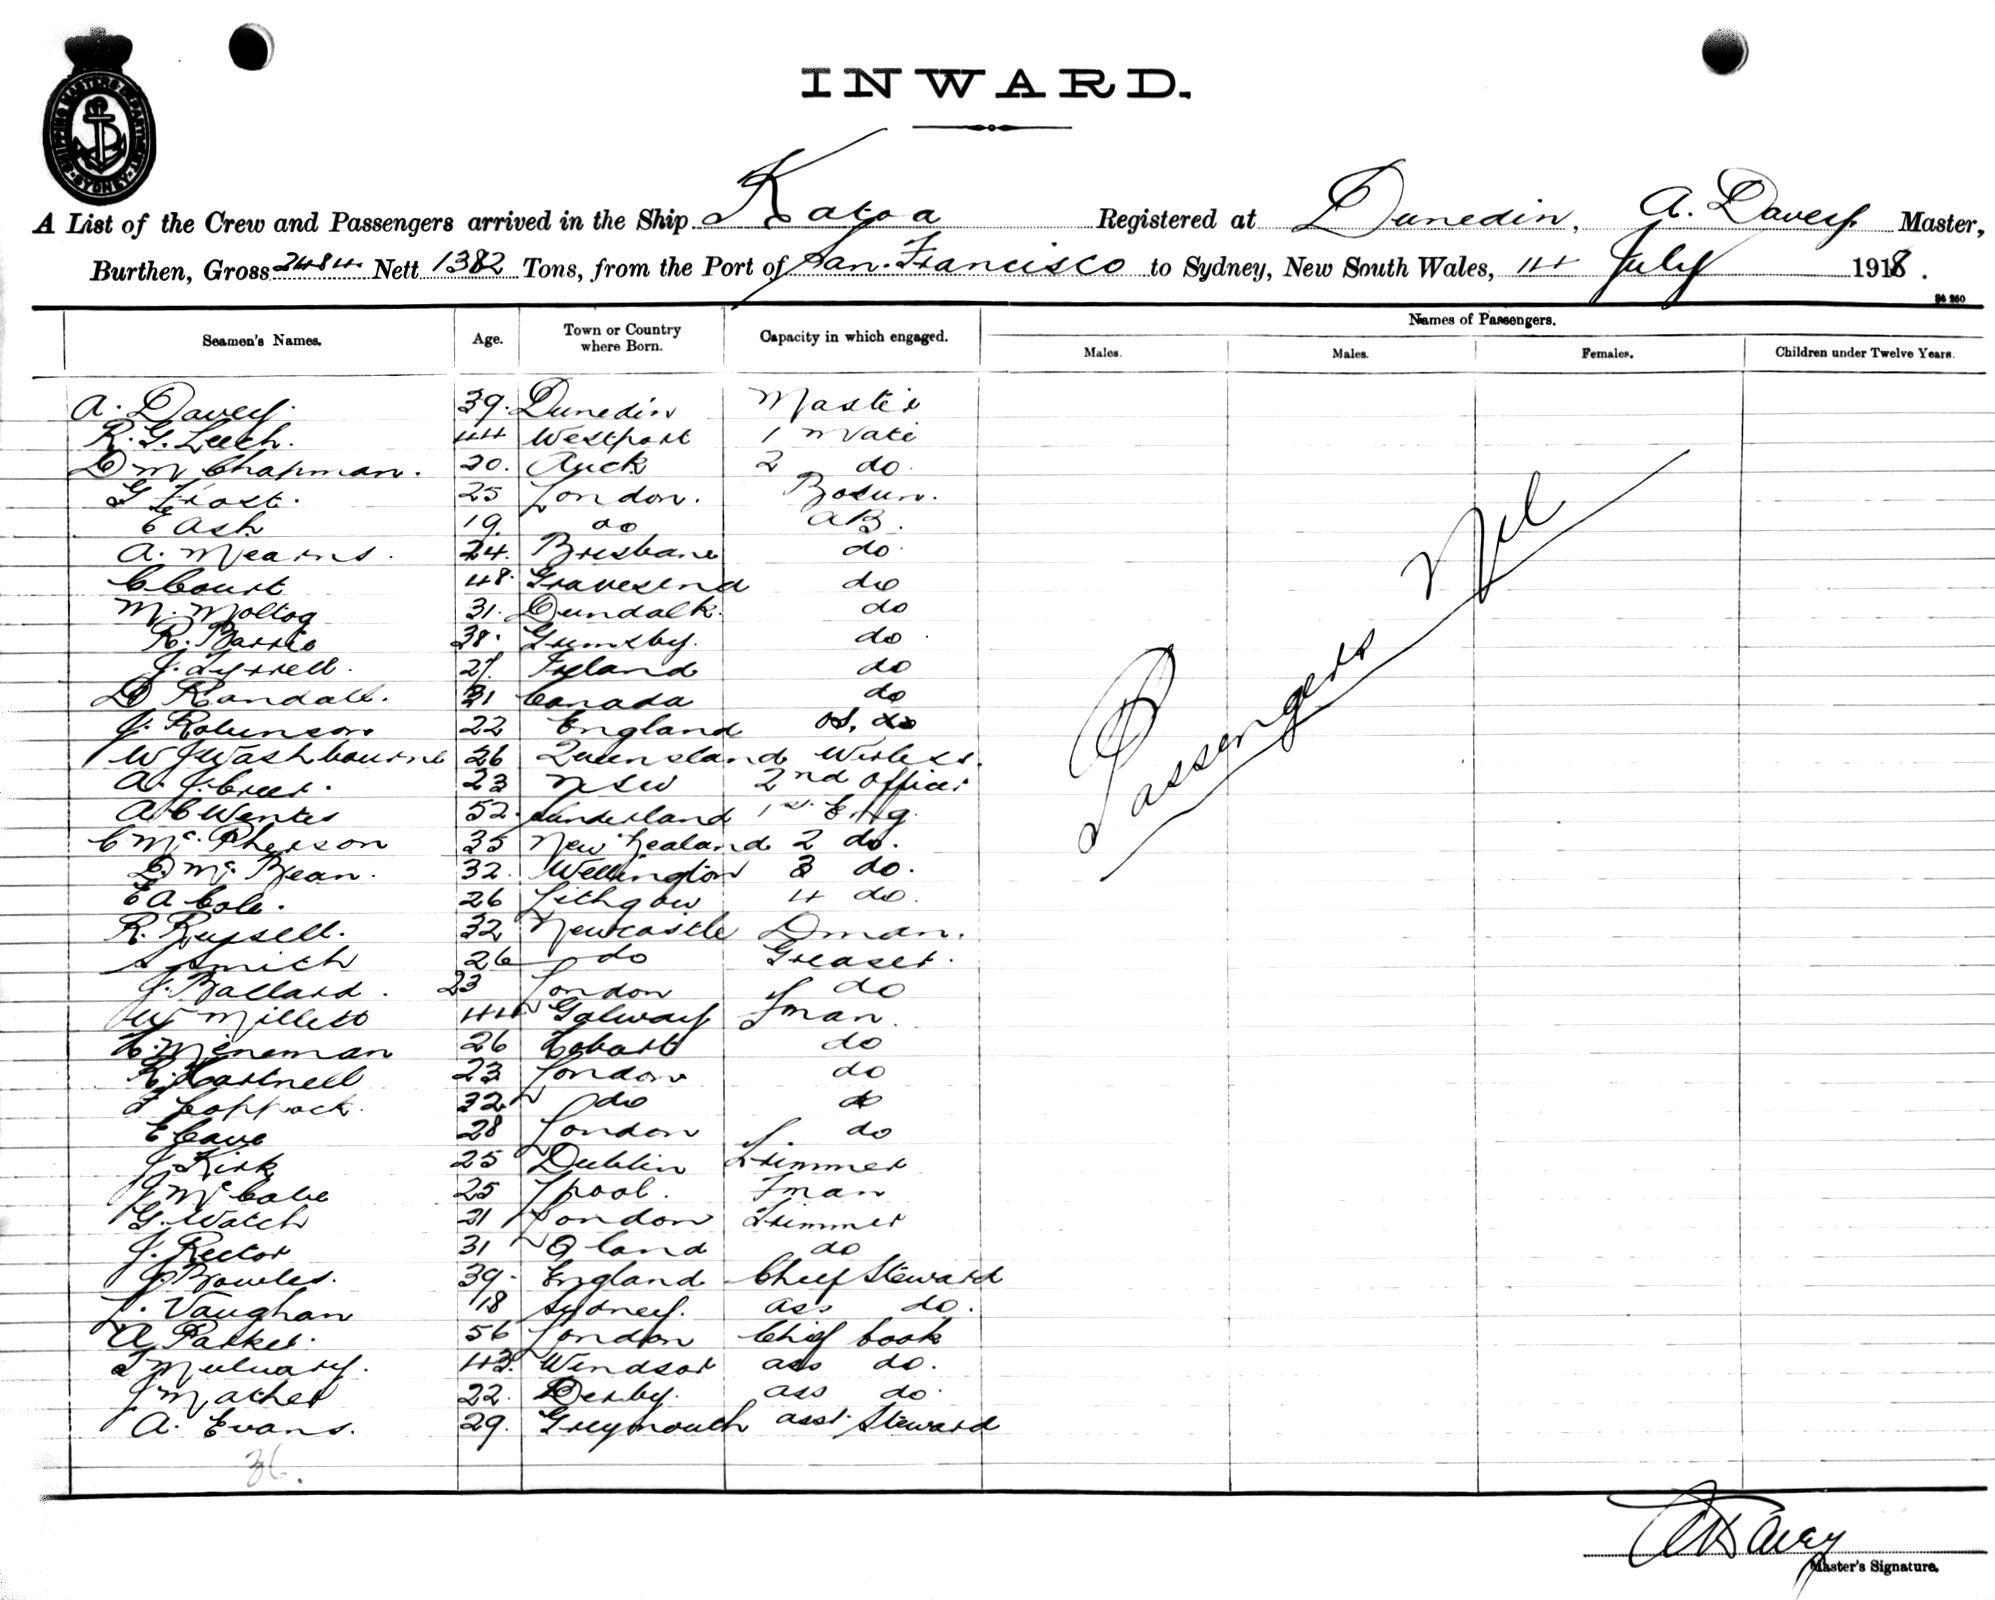 SHIPPING MASTERS DEPARTMENT SYDNEY
INWARD.
A List of the Crew and Passengers arrived in the Ship Katoa Registered at Dunedin, A. Davey Master,
Burthen, Gross 2484 Nett 1382 Tons, from the Port of San Francisco to Sydney, New South Wales, 14 July 1918.
84 250
Seamen's Names. Age. Town or Country where Born. Capacity in which engaged. Names of Passengers.
Males. Males. Females. Children under Twelve Years.
A. Davey. 39. Dunedin Master
R. G. Leech. 44 Westport 1 Mate
D M Chapman. 20. Auck 2 do.
G Frost. 25 London. Bosun.
E Ash 19. do AB.
A. Mearns. 24. Brisbane do.
C Court 48. Gravesend do
M. 31. Dundalk. do
R. Barrie 38. Grimsby. do.
J. Tyrrell. 27. Ireland do
D Randall. 31 Canada do
J. Robinson. 22 England OS. do
W J Washbourne 26 Queensland Wireless.
A. J. Greer. 23 NSW 2nd Officer
A C Wentes 52. Sunderland 1st Eng.
C Mc. Pherson 35 New Zealand 2 do.
D. Mc. Bean. 32. Wellington 3 do.
E A Cole. 26 Lithgow 4 do.
R. Russell. 32 Newcastle Dman.
S Smith 26 do Greaser.
J. Ballard. 23 London do
W Millett 44 Galway Fman.
H. Mineman 26 Hobart do
R. Hartnell 23 London do
T Coppock. 32 do do
E Cave 28 London do
J. Kirk 25 Dublin Trimmer
J Mc Cabe 25 Lpool. Fman
G. Watch 21 London Trimmer
J. Rector 31 do
J. Bowles. 39. England Chief Steward
L. Vaughan 18 Sydney. ass do.
A Parker. 56 London Chief Cook
T Mulvary. 43. Windsor ass do.
J Mather 22. Derby. ass do.
A. Evans. 29. Greymouth asst. Steward
36.
Passengers Nil
A Davey
Master's Signature.